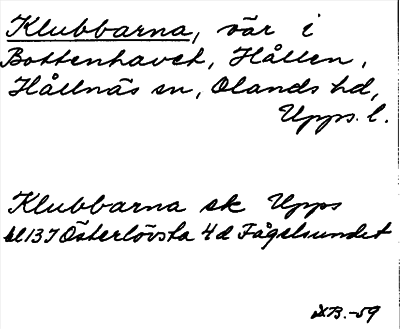 Klubbarna, vär i
Bottenhavet, Hållen,
Hållnäs sn, Olands hd,
Upps. l.
Klubbarna sk Upps
bl 137 Österlövsta 4d Fågelsundet
B.-59